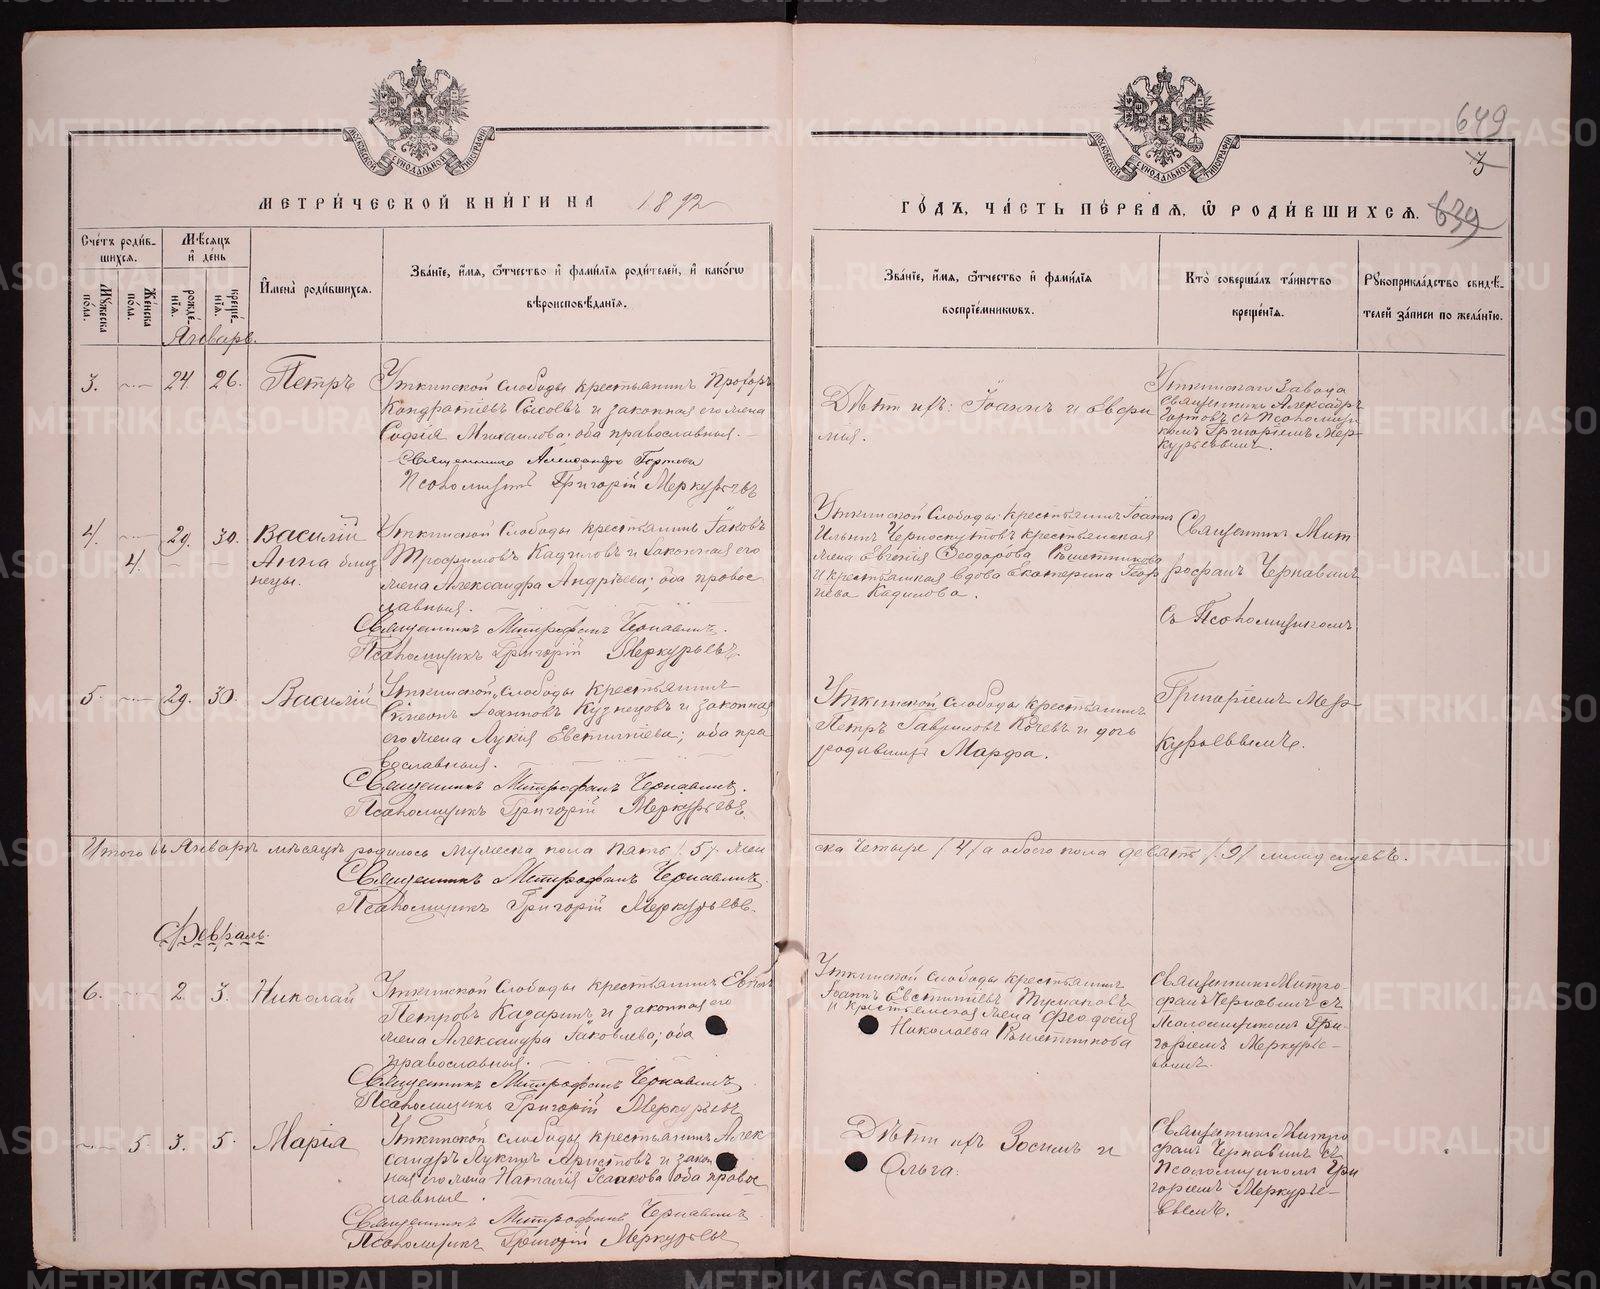 649
3
639
МОСКОВСКОЙ СѴНОДАЛЬНОЙ ТИПОГРАФІИ
МОСКОВСКОЙ СѴНОДАЛЬНОЙ ТИПОГРАФІИ
МЕТРИ́ЧЕСКОЙ КНИ́ГИ НА 1892
ГО́ДЪ, ЧА́СТЬ ПЕ́РВАЯ, Ѡ РОДИ́ВШИХСЯ.
Сче́тъ роди́вшихся.
Му́жеска по́ла.
Же́нска по́ла.
Мѣ́сяцъ и де́нь
рожде́нія.
креще́нія.
Имена̀ роди́вшихся.
Зва́ніе, и́мя, ѻ́тчество и фами́лія роди́телей, и како́гѡ
вѣроисповѣ́данія.
Зва́ніе, и́мя, ѻ́тчество и фами́лія
воспріе́мникѡвъ.
Кто̀ соверша́лъ та́инство
креще́нія.
Рꙋкоприкла́дство свидѣ́-
телей за́писи по жела́нію.
Январь.
3. 24 26. Петръ
Уткинской слободы крестьянинъ Прохоръ
Кондратіевъ Сысоевъ и законная его жена
Софія Михаилова; оба православныя.
Священникъ Александръ
Псаломщикъ Григорій Меркурьевъ
Дѣти ихъ: Іоаннъ и Евфи
мія.
Уткинскаго Завода
Священникъ Александръ
съ Псаломщи
комъ Григоріемъ Мер-
курьевымъ.
4. 29. 30. Василій
4. Анна близ
нецы.
Уткинской Слободы крестьянинъ Іаковъ
Трофимовъ Кадиловъ и законная его
жена Александра Андреева; оба правос
лавныя.
Священникъ Митрофанъ Чернавинъ.
Псаломщикъ Григорій Меркурьевъ.
Уткинской Слободы крестьянинъ Іоаннъ
Ильинъ Черноскутовъ крестьянская
жена Евгенія Ѳеодорова Решетникова
и крестьянская вдова Екатерина Геор
гіева Кадилова.
Священникъ Мит
рофанъ Чернавинъ
съ Псаломщикомъ
5. 29. 30. Василій
Уткинской Слободы крестьянинъ
Симеонъ Іоанновъ Кузнецовъ и законная
его жена Лукія Евстигніева; оба пра
вославныя.
Священникъ Митрофанъ Чернавинъ.
Псаломщикъ Григорій Меркурьевъ.
Уткинской Слободы крестьянинъ
Петръ Гавриловъ Кочевъ и дочь
родившихъ Марѳа.
Григоріемъ Мер-
курьевымъ.
Итого въ Январѣ мѣсяцѣ родилось мужеска пола пять /5/ жен
ска четыре /4/ а обоего пола девять /9/ младенцевъ.
Священникъ Митрофанъ Чернавинъ.
Псаломщикъ Григорій Меркурьевъ.
Февраль.
6. 2. 3. Николай
Уткинской Слободы крестьянинъ
Петровъ Казаринъ и законная его
жена Александра Іаковлева; оба
православныя.
Священникъ Митрофанъ Чернавинъ
Псаломщикъ Григорій Меркурьевъ
Уткинской Слободы крестьянинъ
Іоаннъ Евстигніевъ Тумаковъ
и крестьянская жена Ѳеодосія
Николаева Решетникова
Священникъ Митро-
фанъ Чернавинъ съ
Псаломщикомъ Гри-
горіемъ Меркурье-
вымъ.
5. 3. 5. Марія
Уткинской слободы крестьянинъ Алек
сандръ Лукинъ Аристовъ и закон
ная его жена Наталія Исаакова оба правос
лавные.
Священникъ Митрофанъ Чернавинъ
Псаломщикъ Григорій Меркурьевъ
Дѣти ихъ Зосимъ и
Ольга.
Священникъ Митро
фанъ Чернавинъ съ
Псаломщикомъ Гри
горіемъ Меркурье-
вымъ.
METRIKI.GASO-URAL.RU